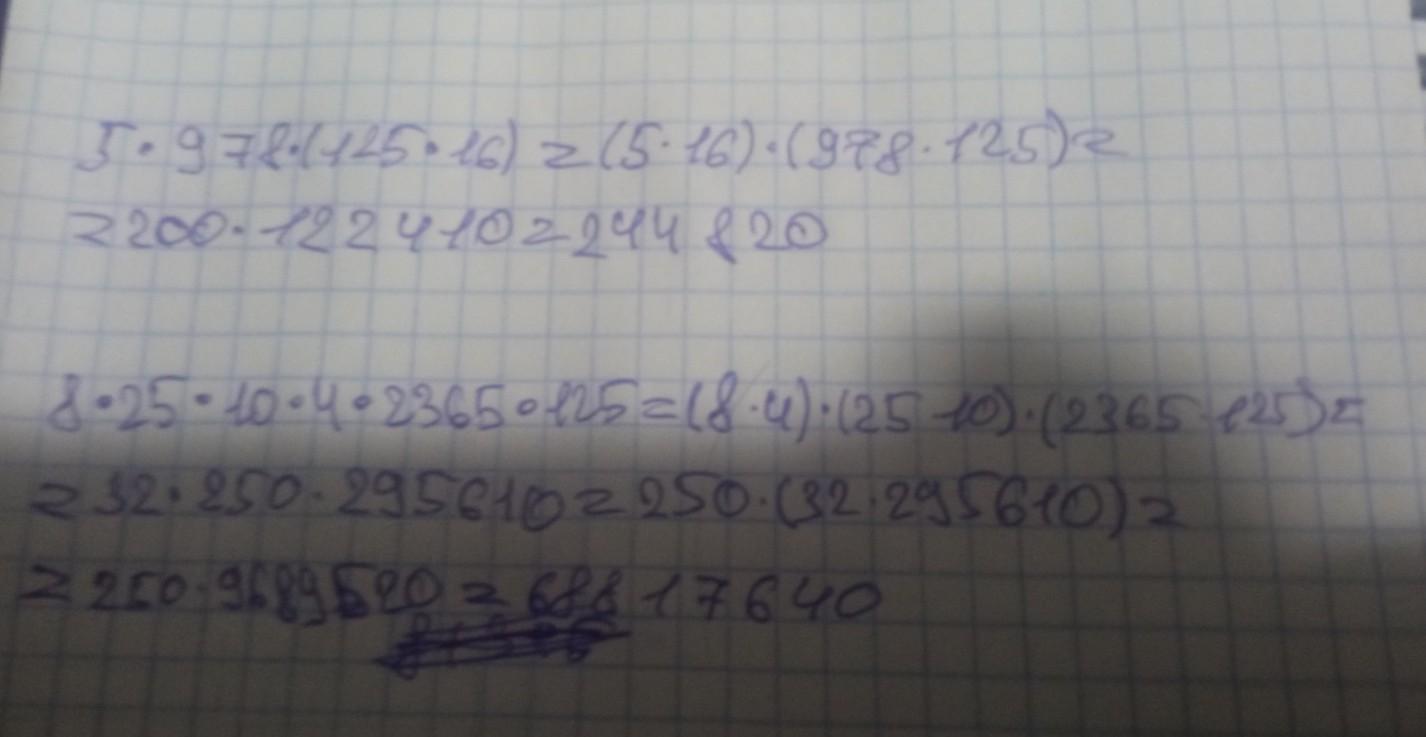 5·978·(125·16)=(5·16)·(978·125)=
=200·122410=244820
8·25·10·4·2365·125=(8·4)·(25·10)·(2365·125)=
=32·250·295610=250·(32·295610)=
=250·9689520=68817640